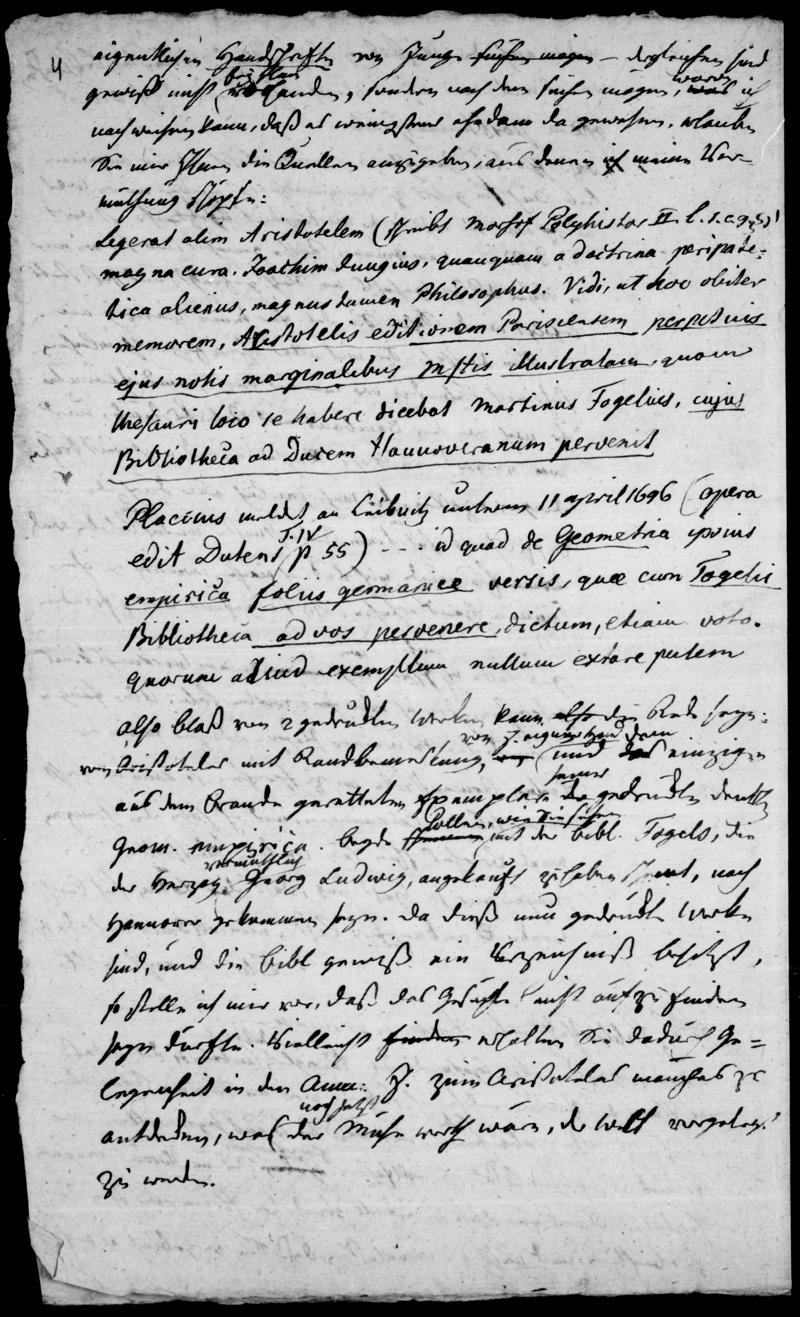 4
eigentlichen Handschriften von Jungs suchen mögen – dergleichen sind
gewiß nicht vorhanden, sondern nach dem suchen mögen, wovon ich
nachweisen kann, daß es wenigstens ehedem da gewesen. Erlauben
Sie mir Ihnen die Quellen anzugeben, aus denen ich meine Ver-
muthung schöpfe:
Legerat olim Aristotelem (schreibt Morhof Polyhistor II. l. 1. c.
magna cura. Joachim Jungius, quanquam a doctrina peripate=
tica alienus, magnus tamen Philosophus. Vidi, ut hoc obiter
memorem, Aristotelis editionem Parisiensem perpetuis
ejus notis marginalibus Mstis illustratam, quam
thesauri loco se habere dicebat Martinus Fogelius, cujus
Bibliotheca ad Ducem Hannoveranum pervenit
Placcius meldet an Leibnitz unterm 11 april 1696 (opera
edit Dutens T. IV p 55) - - - id quod de Geometria ipsius
empirica foliis germanice versis, quae cum Fogelii
Bibliotheca ad vos pervenere, dictum, etiam voto.
quorum aliud exemplum nullum extare putem
Also bloß von 2 gedruckten Werken kann also die Rede seyn:
vom Aristoteles mit Randbemerkung, von J. eigener Hand und dem einzigen
aus dem Brande geretteten Exemplare seiner gedruckten deutschen
Geom. empirica. beyde sollen, wie Sie sehen mit der bibl. Fogels, die
der Herzog vermuthlich Georg Ludwig, angekauft zu haben scheint, nach
Hannover gekommen seyn. Da dieß nun gedruckte Werke
sind, und die bibl gewiß ein Verzeichniß besitzt,
so stelle ich mir vor, daß das Gesuchte leicht aufzufinden
seyn dürfte. Vielleicht finden erhalten Sie dadurch Ge=
legenheit in den Anm: J. zum Aristoteles manches zu
entdecken, was noch jetzt der Mühe werth wäre, der Welt vorgelegt
zu werden.